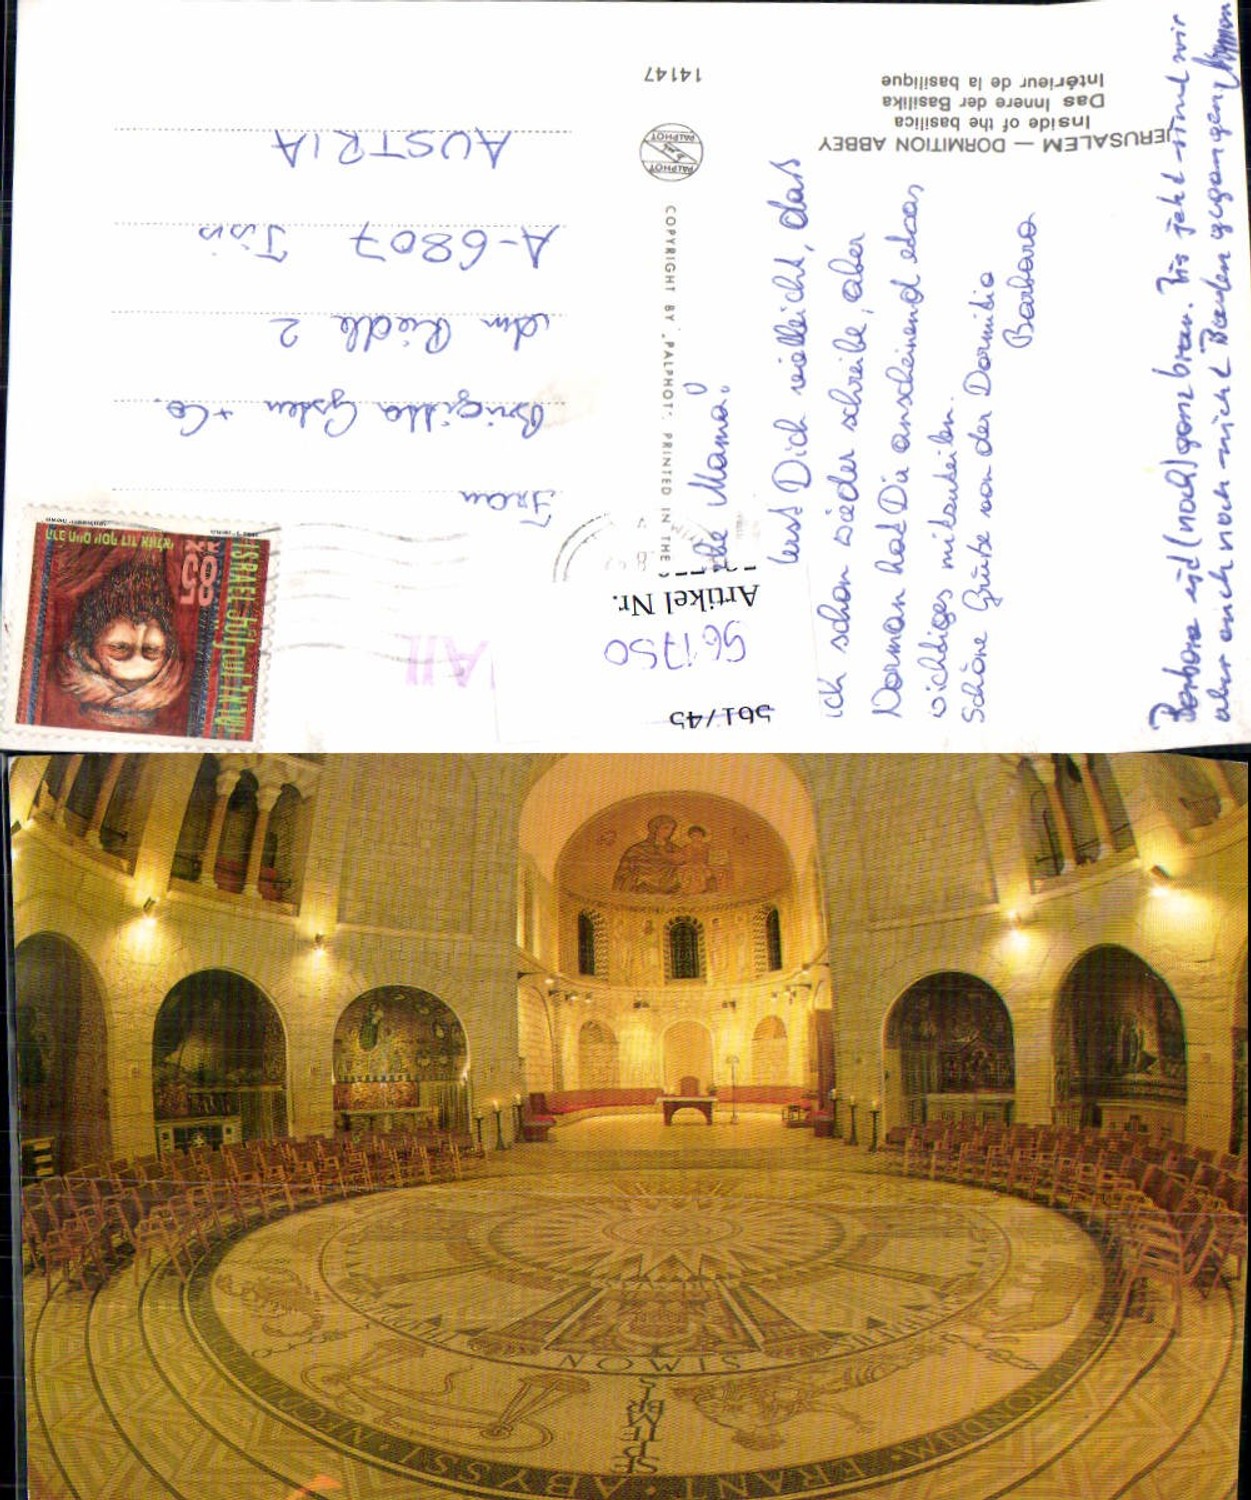 JERUSALEM — DORMITION ABBEY
Inside of the basilica
Das Innere der Basilika
Intérieur de la basilique
14147
PALPHOT
PALPHOT
COPYRIGHT BY "PALPHOT", PRINTED IN THE
Mama!
Dich vielleicht, daß
ich schon wieder schreibe, aber
Norman hat Dir anscheinend etwas
wichtiges mitzuteilen.
Schöne Grüße von der Dormitio
Barbara
Barbara ist (noch) ganz braun. Bis jetzt sind wir
aber auch noch nicht Baden gegangen
Frau
Brigitte + Co.
Am Riedle 2
A-6807 Tisis
AUSTRIA
561/45
561750
Artikel Nr.
ISRAEL
85
NOWIS
SE
PTE
MBR
IS
ERANT ABYSSI NEC